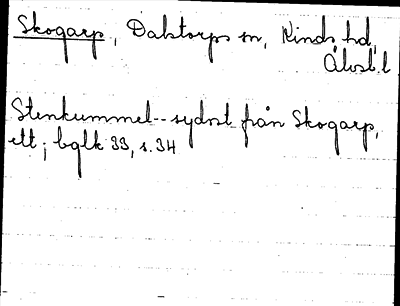 Skogarp, Dalstorps sn, Kinds hd,
Älvsb. l
Stenkummel -- sydost från Skogarp,
ett; bglk 33, s. 34